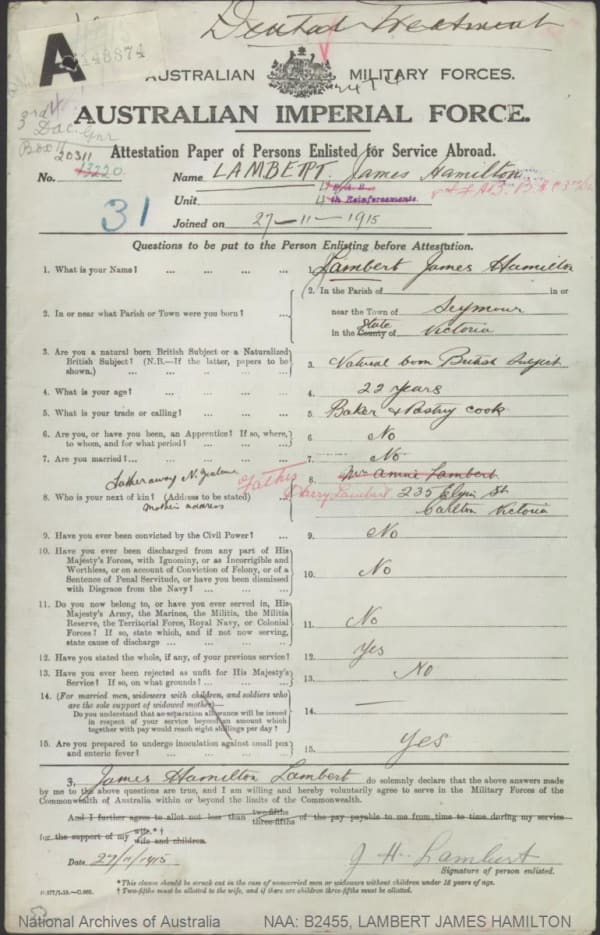 Dental Treatment
A
148874
AUSTRALIAN MILITARY FORCES.
AUSTRALIAN IMPERIAL FORCE.
3rd
Dac. Gnr
Box 11
20311
Attestation Paper of Persons Enlisted for Service Abroad.
No. 20 Name LAMBERT James Hamilton
31
Unit th Reinforcements
Joined on 27-11-1915
Questions to be put to the Person Enlisting before Attestation.
1. What is your Name? ... ... ... ... 1. Lambert James Hamilton
2. In or near what Parish or Town were you born? ... 2. In the Parish of in or
near the Town of Seymour
in the County of State Victoria
3. Are you a natural born British Subject or a Naturalized British Subject? (N.B.—If the latter, papers to be shown.) ... 3. Natural born British Subject
4. What is your age? ... ... ... ... 4. 22 years
5. What is your trade or calling? ... ... ... 5. Baker & Pastry cook
6. Are you, or have you been, an Apprentice? If so, where, to whom, and for what period? ... ... 6 No
7. Are you married?... ... ... ... 7. No
Father away N. Zealand
Father
8. Who is your next of kin? (Address to be stated) 8. Mrs Annie Lambert
Mothers address
Harry Lambert 235 Elgin St
Carlton Victoria
9. Have you ever been convicted by the Civil Power? ... 9. No
10. Have you ever been discharged from any part of His Majesty's Forces, with Ignominy, or as Incorrigible and Worthless, or on account of Conviction of Felony, or of a Sentence of Penal Servitude, or have you been dismissed with Disgrace from the Navy? ... ... 10. No
11. Do you now belong to, or have you ever served in, His Majesty's Army, the Marines, the Militia, the Militia Reserve, the Territorial Force, Royal Navy, or Colonial Forces? If so, state which, and if not now serving, state cause of discharge ... ... ... 11. No
12. Have you stated the whole, if any, of your previous service? 12. Yes
13. Have you ever been rejected as unfit for His Majesty's Service? If so, on what grounds? ... ... 13. No
14. (For married men, widowers with children, and soldiers who are the sole support of widowed mother)—
Do you understand that no separation allowance will be issued in respect of your service beyond an amount which together with pay would reach eight shillings per day? 14. —
15. Are you prepared to undergo inoculation against small pox and enteric fever? ... ... ... 15. Yes
I, James Hamilton Lambert do solemnly declare that the above answers made
by me to the above questions are true, and I am willing and hereby voluntarily agree to serve in the Military Forces of the
Commonwealth of Australia within or beyond the limits of the Commonwealth.
And I further agree to allot not less than two-fifths three-fifths of the pay payable to me from time to time during my service
for the support of my wife.*† wife and children.
Date 27/11/1915 J H Lambert
Signature of person enlisted.
*This clause should be struck out in the case of unmarried men or widowers without children under 18 years of age.
† Two-fifths must be allotted to the wife, and if there are children three-fifths must be allotted.
National Archives of Australia NAA: B2455, LAMBERT JAMES HAMILTON